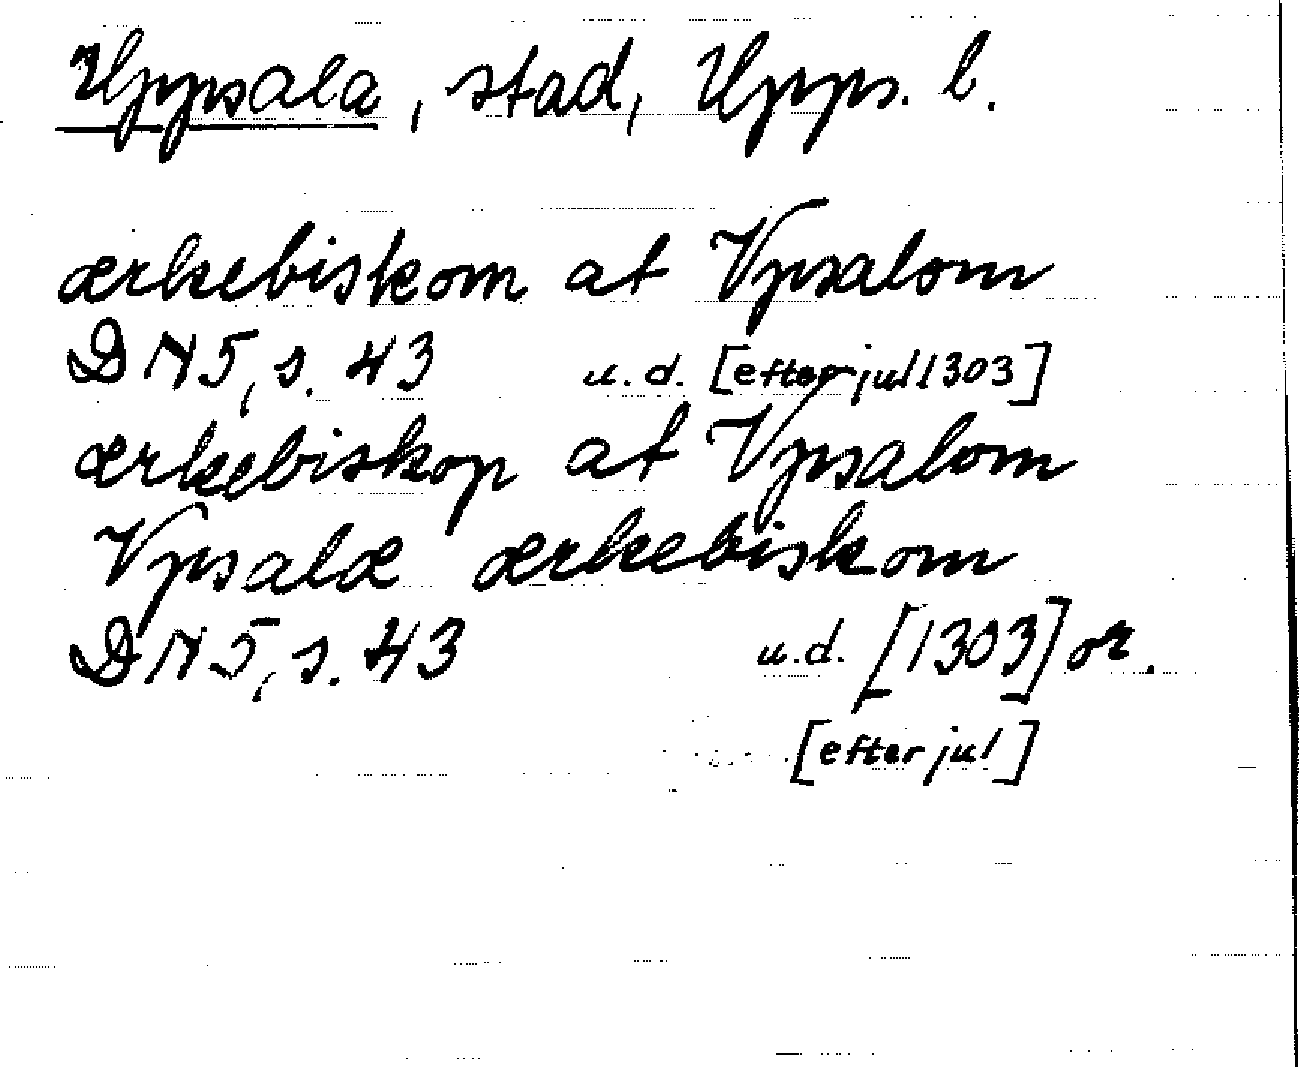 Uppsala, stad, Upps. l.
ærkebiskom at Vpsalom
DN 5, s. 43 u.d. [efter jul 1303]
ærkebiskop at Vpsalom
Vpsalæ ærkebiskom
DN 5, s. 43 u.d. [1303] or.
[efter jul]